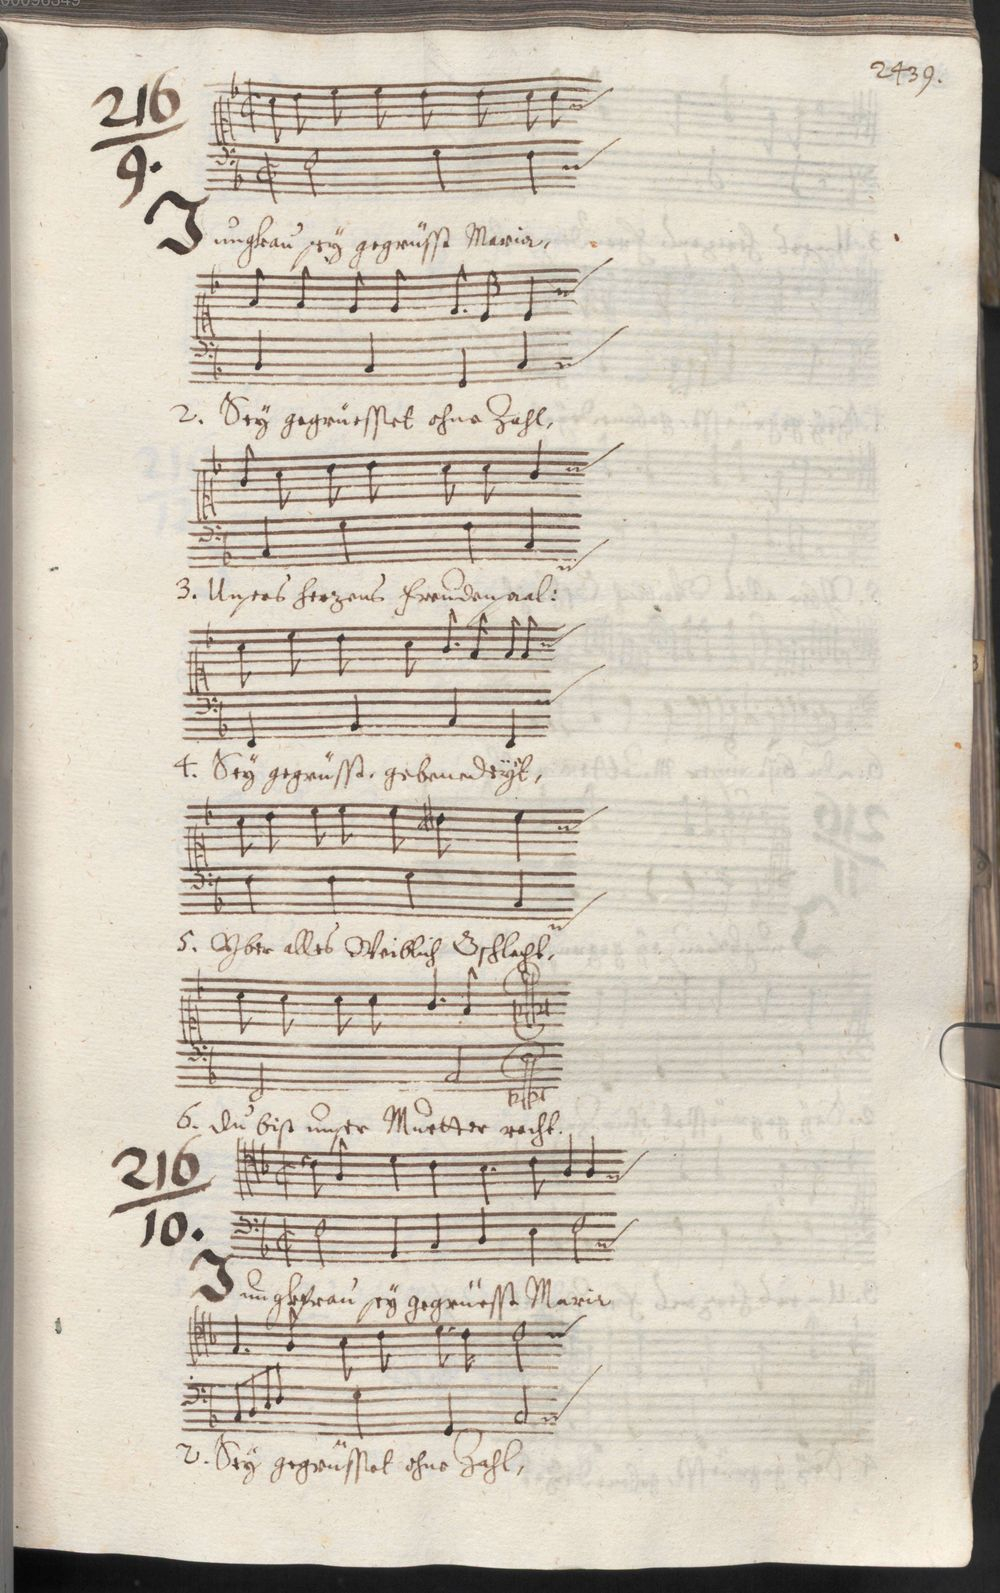 2439.
216
9.
Jungfrau sey gegrüsst Maria,
2. Sey gegruesset ohne Zahl,
3. Unsers herzens freudensaal:
4. Sey gegrüsst, gebenedeÿt,
5. Yber alles Weiblich Gschlecht,
6. Du bist unser Muetter recht.
216
10.
Jungkfrau sey gegrüesst Maria
2. Sey gegrüsset ohne Zahl,